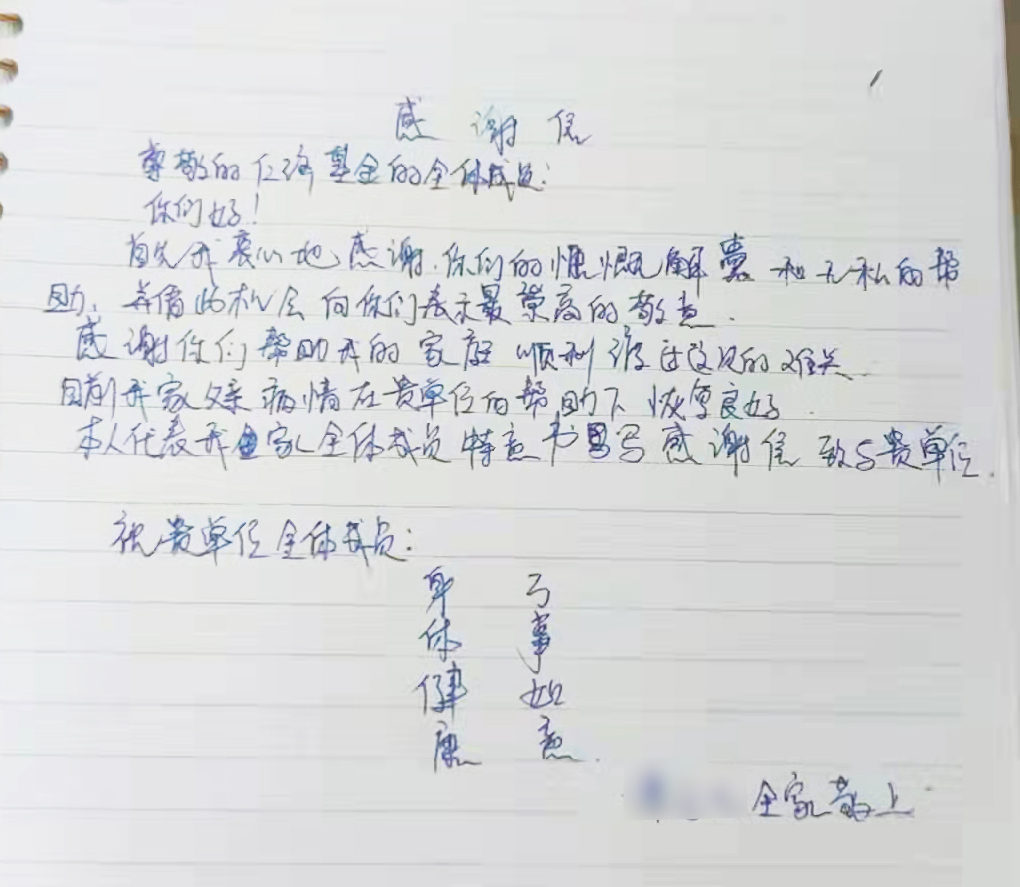 感谢信
尊敬的仁济基金的全体成员:
你们好!
首先我衷心地感谢.你们的慷慨解囊和无私的帮
助、并借此机会向你们表示最崇高的敬意.
感谢你们帮助我的家庭顺利渡过这次的难关.
目前我家父亲病情在贵单位的帮助下恢复良好.
本人代表我家全体成员特意书写感谢信致与贵单位.
祝贵单位全体成员:
身体健康
万事如意.
全家敬上